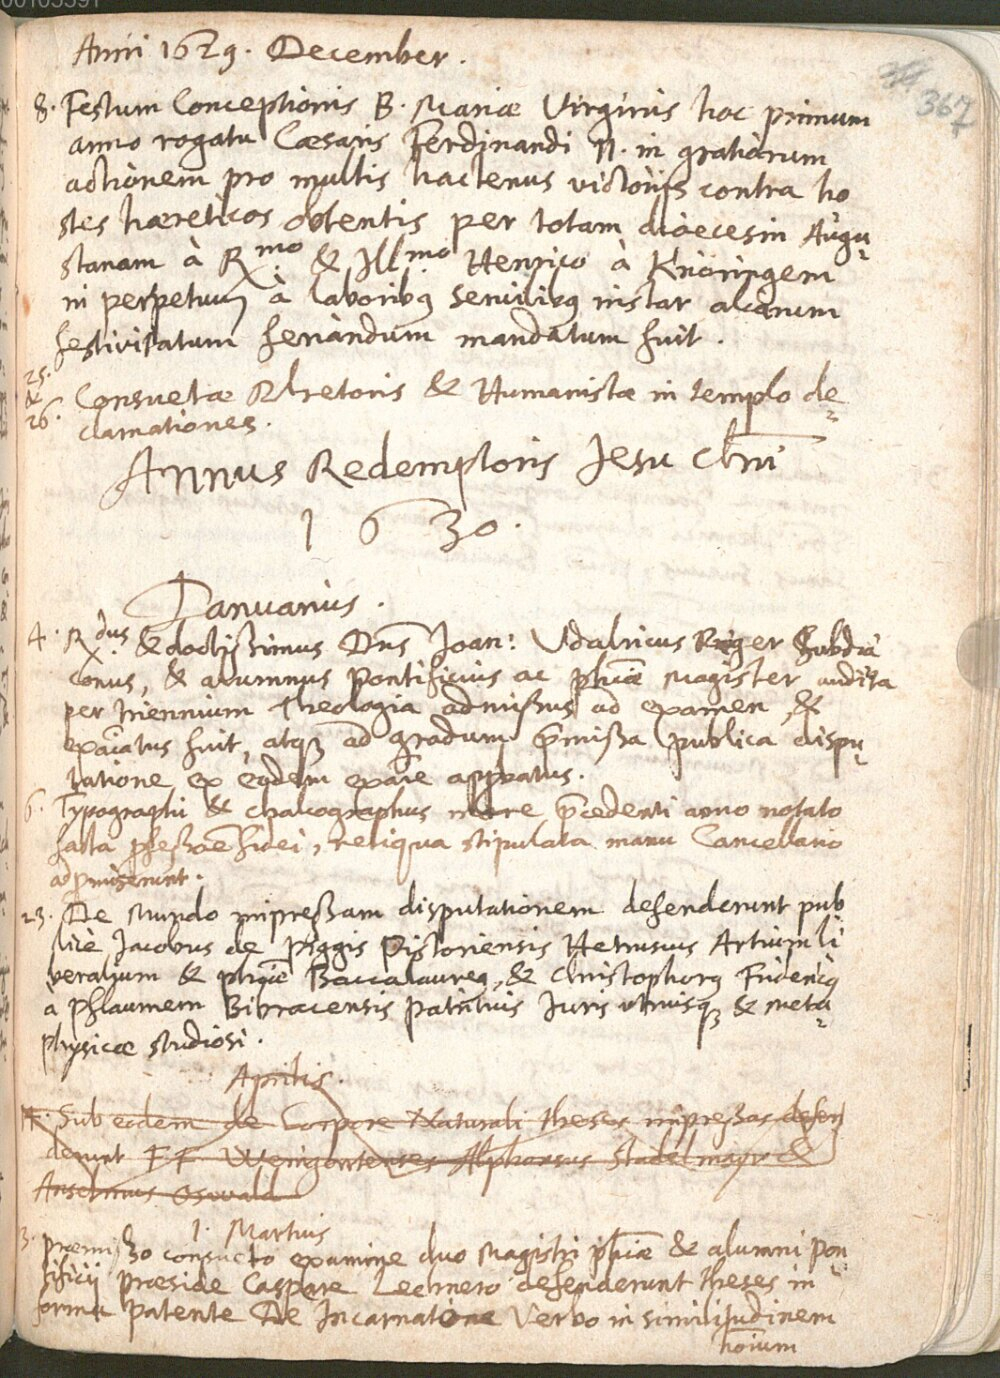 00105391
Anni 1629. December.
367
8. Festum Conceptionis B. Mariæ Virginis hoc primum
anno rogatu Cæsaris Ferdinandi II. in gratiarum
actionem pro multis hactenus victorijs contra ho
stes hæreticos obtentis per totam diœcesin Augu=
stanam à R.mo & Ill.mo Henrico à Knöringen
in perpetuum à laboribq servilibq instar aliarum
festivitatum feriandum mandatum fuit.
25.
&
26. Consuetæ Rhetoris & Humanistæ in templo de=
clamationes.
Annus Redemptoris Jesu Chri
1630.
Januarius.
4. R.dus & doctissimus Dns Joan: Udalricus Rieger Subdia
conus, & alumnus Pontificius ac phiæ Magister audita
per triennium Theologia admissus ad examen, &
exaiatus fuit, atq ad gradum p̄missa publica dispu=
tatione ex eodem exaie appbatus.
6. Typographi & chalcographus more p̄cedenti anno notato
facta pfessioe fidei, reliqua stipulata manu Cancellario
adpmiserunt.
23. De Mundo impressam disputationem defenderunt pub
licè Jacobus de Pistoriensis Hetruscus Artium li
beralium & phiæ Baccalaureq, & Christophorq Fridericq
a Pflaumern Bibracensis Patritius Juris utriusq & meta=
physicæ studiosi.
Aprilis.
Sub eodem de Corpore Naturali theses impressas defen
derunt FF Weingartenses Alphonsus Stadelmayr &
Anselmus Oswald
1. Martius
3. præmisso consueto examine duo Magistri phiæ & alumni pon=
tificij præside Caspare Lechnero defenderunt theses in
forma patente De Incarnatione Verbo in similitudinem
hoium